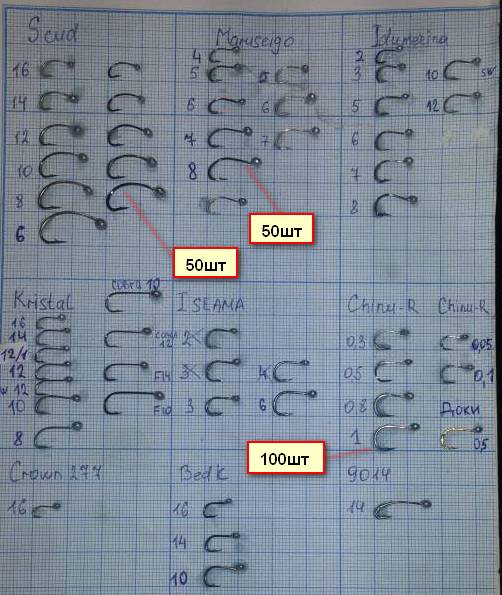 Scud
16
14
12
10
8
6
50шт
Maruseigo
4
5
6
7
8
6
7
50шт
Idumezina
2
3
5
6
7
8
10
12
Kristal
16
14
12/1
12
w 12
10
8
cobra 10
12
F14
F10
ISEAMA
2x
3x
3
6
Chinu-R
0,3
0,5
0,8
1
100шт
Chinu-R
0,05
0,1
Доки
0,5
Crown 277
16
Bed K
16
14
10
9014
14